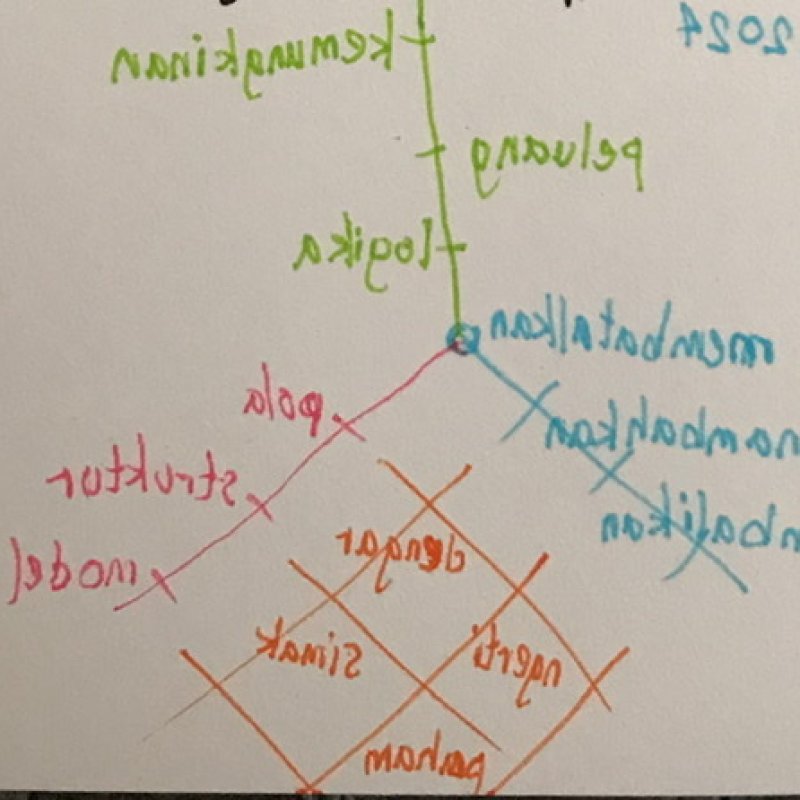 2024
kemungkinan
peluang
logika
membatalkan
pola
nambahkan
struktur
mbalikan
model
dengar
simak
ngerti
paham